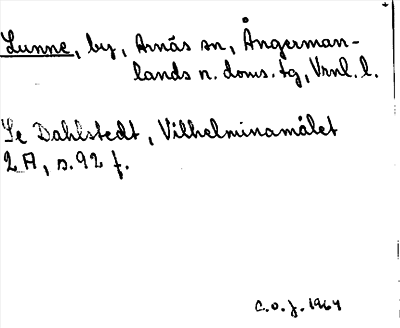 Lunne, by, Arnäs sn, Ångerman-
lands n. doms. tg, Vrnl. l.
Se Dahlstedt, Vilhelminamålet
2 A, s. 92 f.
C.O.J. 1964